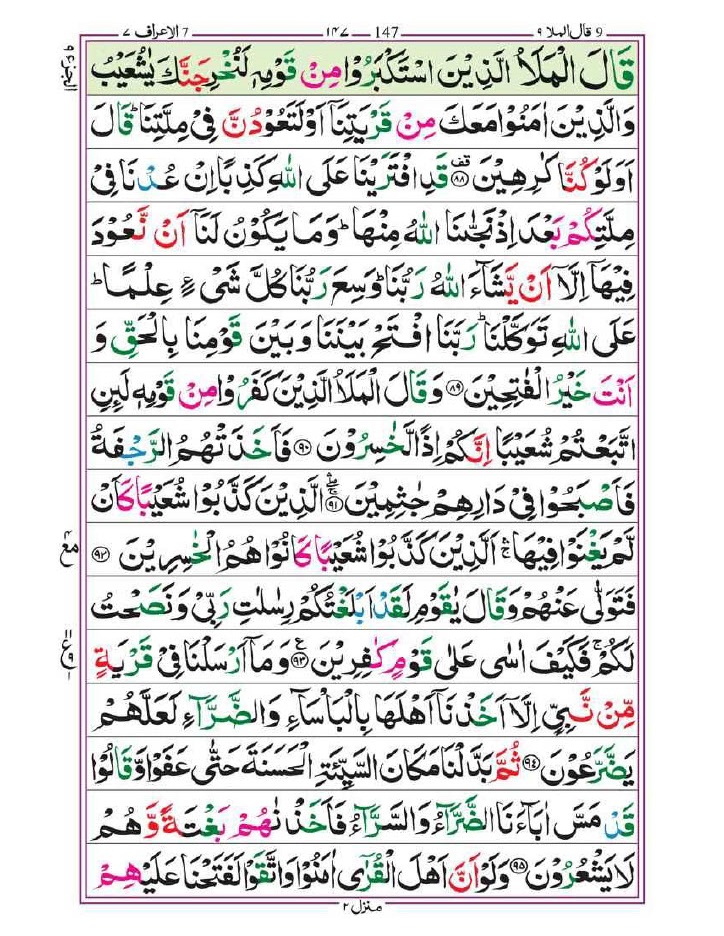 ٩ قال الملا ٩ — 147 — ١٤٧ — 7 الاعراف ٧
قَالَ الْمَلَاُ الَّذِيْنَ اسْتَكْبَرُوْا مِنْ قَوْمِهٖ لَنُخْرِجَنَّكَ يٰشُعَيْبُ
وَالَّذِيْنَ اٰمَنُوْا مَعَكَ مِنْ قَرْيَتِنَاۤ اَوْ لَتَعُوْدُنَّ فِيْ مِلَّتِنَا ؕ قَالَ
اَوَلَوْ كُنَّا كٰرِهِيْنَ ۟قف ﴿۸۸﴾ قَدِ افْتَرَيْنَا عَلَى اللّٰهِ كَذِبًا اِنْ عُدْنَا فِيْ
مِلَّتِكُمْ بَعْدَ اِذْ نَجّٰىنَا اللّٰهُ مِنْهَا ؕ وَمَا يَكُوْنُ لَنَاۤ اَنْ نَّعُوْدَ
فِيْهَاۤ اِلَّاۤ اَنْ يَّشَآءَ اللّٰهُ رَبُّنَا ؕ وَسِعَ رَبُّنَا كُلَّ شَيْءٍ عِلْمًا ؕ
عَلَى اللّٰهِ تَوَكَّلْنَا ؕ رَبَّنَا افْتَحْ بَيْنَنَا وَبَيْنَ قَوْمِنَا بِالْحَقِّ وَ
اَنْتَ خَيْرُ الْفٰتِحِيْنَ ﴿۸۹﴾ وَقَالَ الْمَلَاُ الَّذِيْنَ كَفَرُوْا مِنْ قَوْمِهٖ لَئِنِ
اتَّبَعْتُمْ شُعَيْبًا اِنَّكُمْ اِذًا لَّخٰسِرُوْنَ ﴿۹۰﴾ فَاَخَذَتْهُمُ الرَّجْفَةُ
فَاَصْبَحُوْا فِيْ دَارِهِمْ جٰثِمِيْنَ ﴿۹۱﴾ الَّذِيْنَ كَذَّبُوْا شُعَيْبًا كَاَنْ
لَّمْ يَغْنَوْا فِيْهَا ۚ اَلَّذِيْنَ كَذَّبُوْا شُعَيْبًا كَانُوْا هُمُ الْخٰسِرِيْنَ ﴿۹۲﴾
فَتَوَلّٰى عَنْهُمْ وَقَالَ يٰقَوْمِ لَقَدْ اَبْلَغْتُكُمْ رِسٰلٰتِ رَبِّيْ وَنَصَحْتُ
لَكُمْ ۚ فَكَيْفَ اٰسٰى عَلٰى قَوْمٍ كٰفِرِيْنَ ﴿۹۳﴾ وَمَاۤ اَرْسَلْنَا فِيْ قَرْيَةٍ
مِّنْ نَّبِيٍّ اِلَّاۤ اَخَذْنَاۤ اَهْلَهَا بِالْبَاْسَآءِ وَالضَّرَّآءِ لَعَلَّهُمْ
يَضَّرَّعُوْنَ ﴿۹۴﴾ ثُمَّ بَدَّلْنَا مَكَانَ السَّيِّئَةِ الْحَسَنَةَ حَتّٰى عَفَوْا وَّقَالُوْا
قَدْ مَسَّ اٰبَآءَنَا الضَّرَّآءُ وَالسَّرَّآءُ فَاَخَذْنٰهُمْ بَغْتَةً وَّهُمْ
لَا يَشْعُرُوْنَ ﴿۹۵﴾ وَلَوْ اَنَّ اَهْلَ الْقُرٰٓى اٰمَنُوْا وَاتَّقَوْا لَفَتَحْنَا عَلَيْهِمْ
منزل ٢